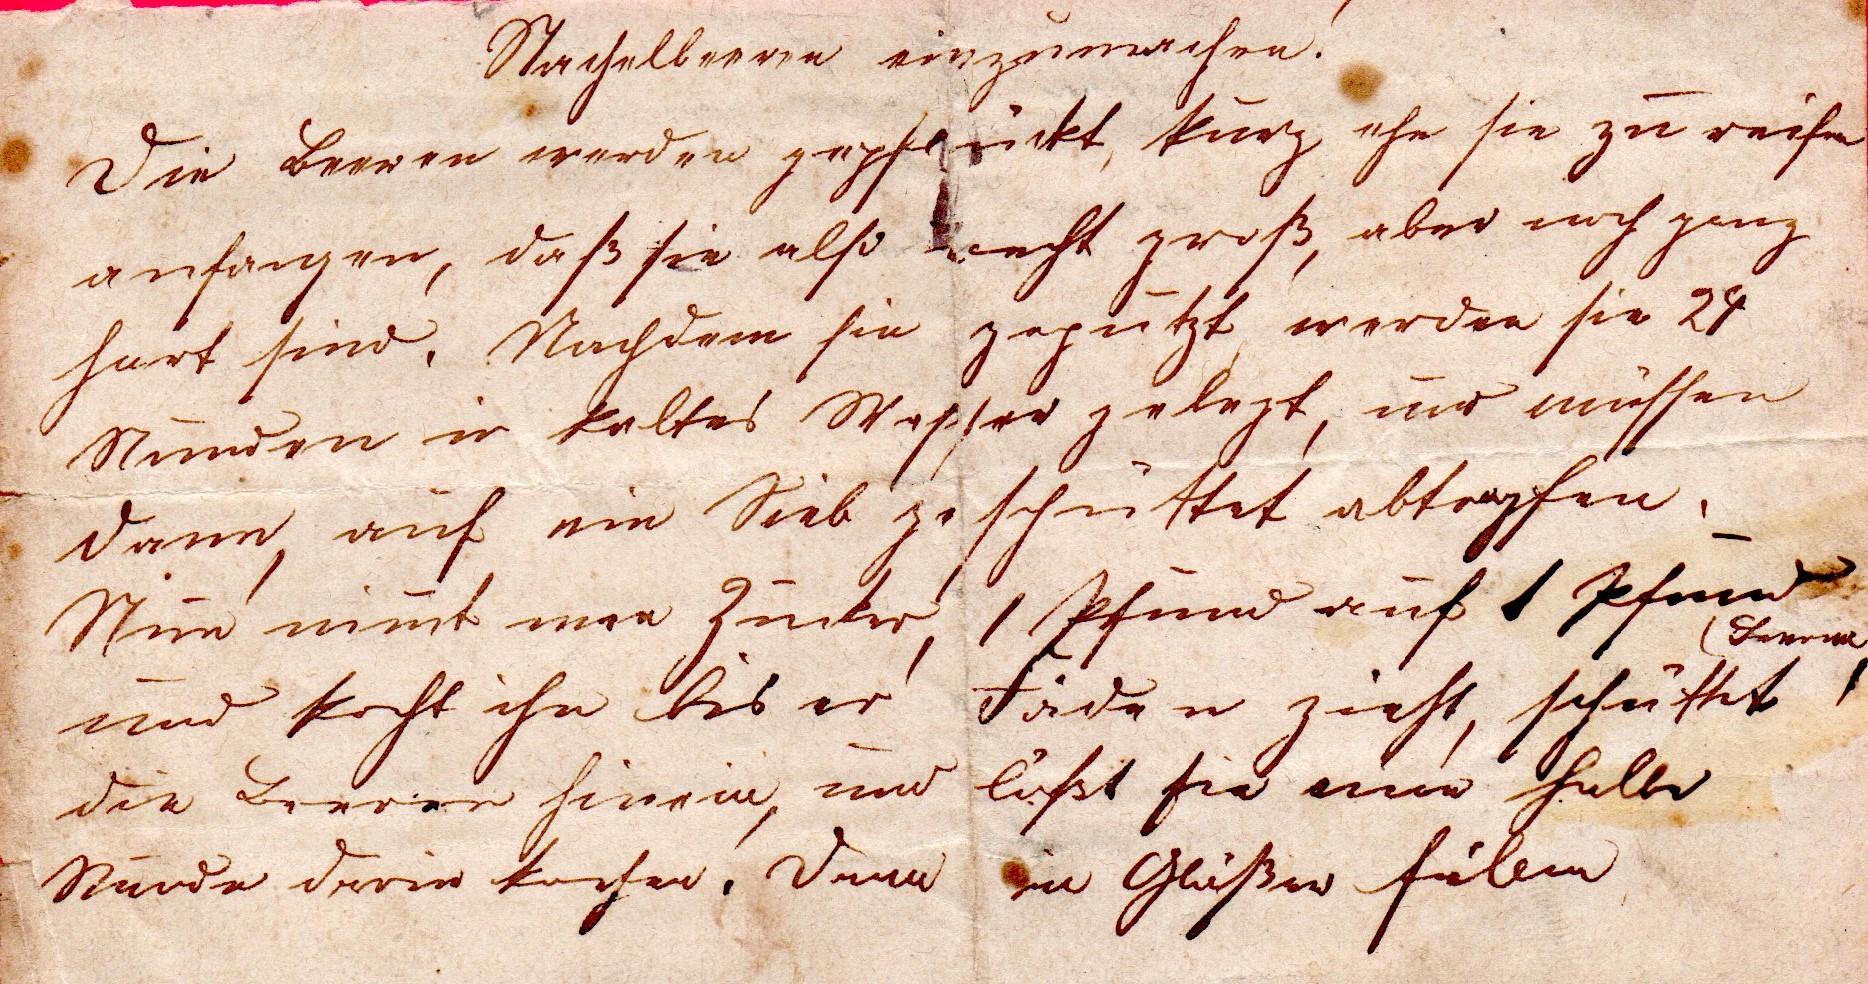 Stachelbeeren einzumachen.
Die Beeren werden gepflückt, kurz ehe sie zu reifen
anfangen, daß sie also recht groß, aber noch ganz
hart sind. Nachdem sie geputzt, werden sie 24
Stunden in kaltes Wasser gelegt, und müssen
dann, auf ein Sieb geschüttet abtropfen.
Nun nimt man Zucker, 1 Pfund auf 1 Pfund
(Beeren,
und kocht ihn bis er Fäden zieht, schüttet
die Beeren hinein, und läßt sie eine halbe
Stunde darin kochen. Dann in Gläßer füllen